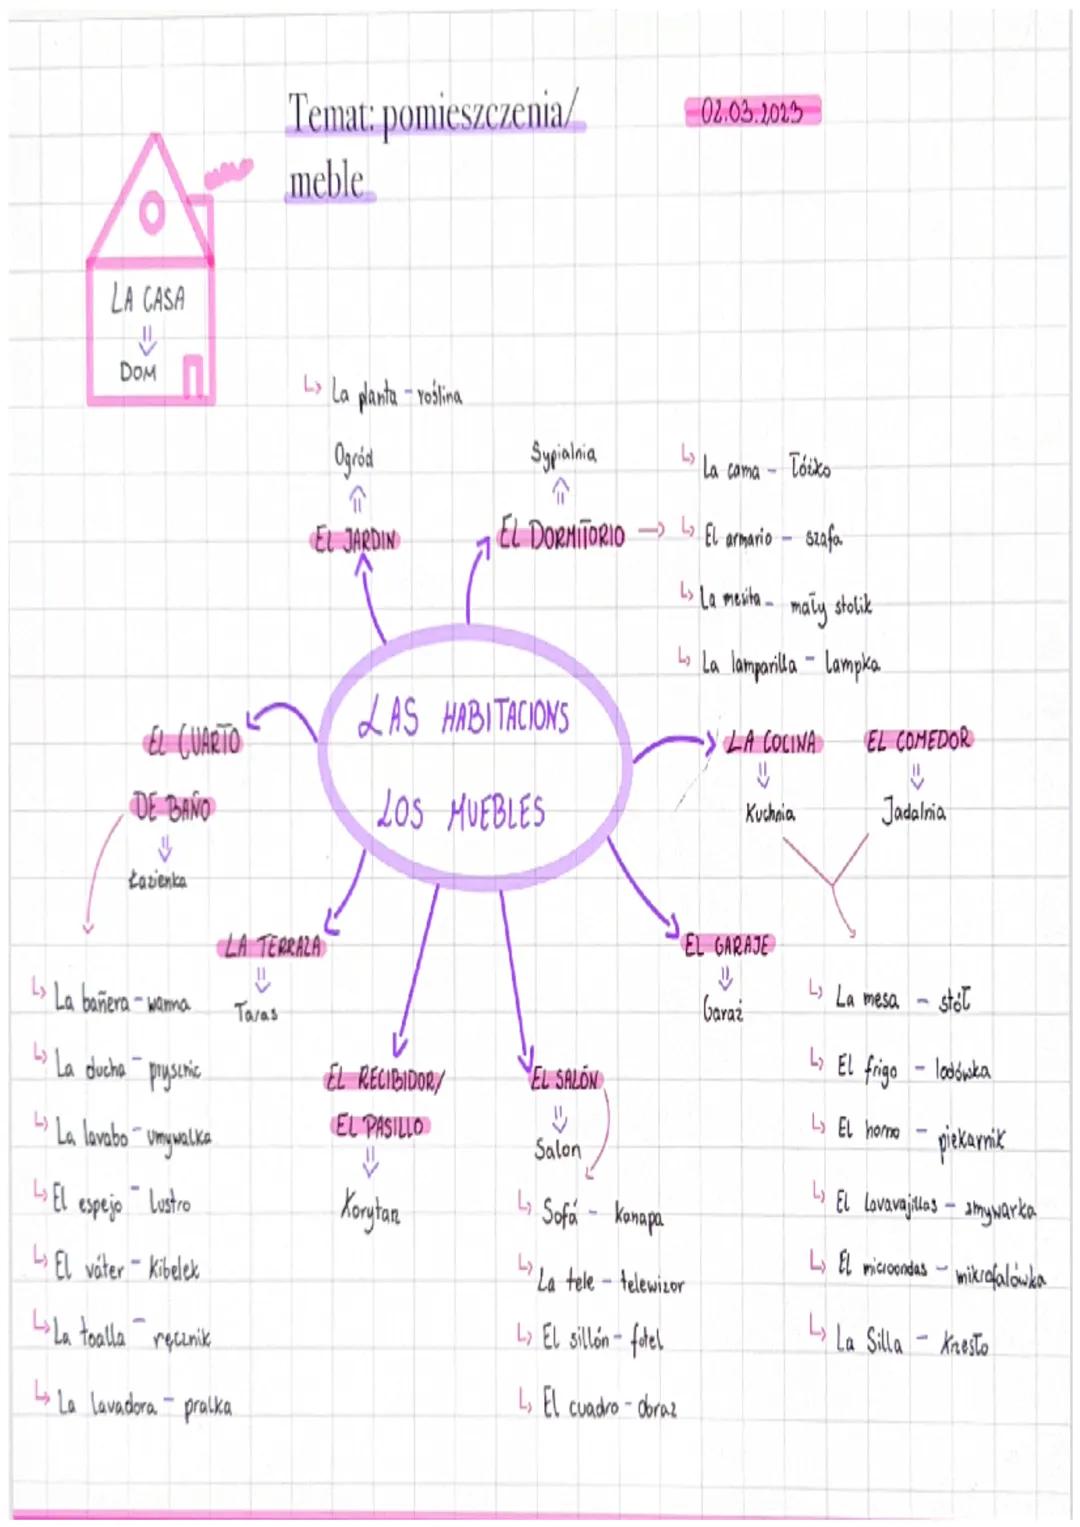 Temat: pomieszczenia/
meble
02.03.2023
LA CASA
DOM
La planta - roślina
Ogród
EL JARDIN
Sypialnia
EL DORMITORIO
La cama - Łóżko
El armario - szafa
La mesita - mały stolik
La lamparilla - lampka
LAS HABITACIONS
LOS MUEBLES
EL CUARTO
DE BAÑO
Łazienka
LA COCINA
Kuchnia
EL COMEDOR
Jadalnia
LA TERRAZA
Taras
EL GARAJE
Garaż
EL RECIBIDOR/
EL PASILLO
Korytarz
EL SALÓN
Salon
La bañera - wanna
La ducha - prysznic
La lavabo - umywalka
El espejo - lustro
El váter - kibelek
La toalla - ręcznik
La lavadora - pralka
Sofá - kanapa
La tele - telewizor
El sillón - fotel
El cuadro - obraz
La mesa - stół
El frigo - lodówka
El horno - piekarnik
El lavavajillas - zmywarka
El microondas - mikrofalówka
La Silla - krzesło